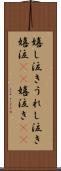 嬉し泣きうれし泣き
嬉泣((嬉泣き((